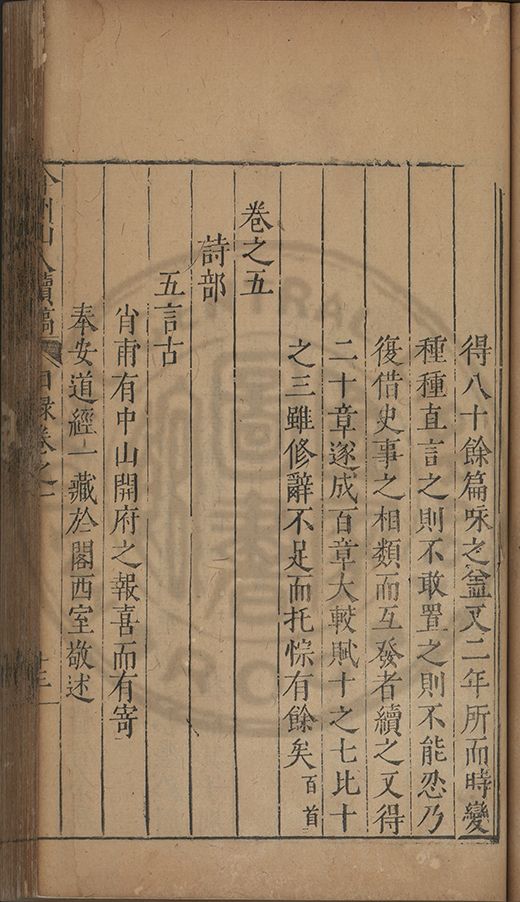 得八十餘篇呠之並又二年所而時變
種種直言之則不敢置之則不能忍乃
復借史事之相類而互發者續之又得
二十章遂成百章大較賦十之七比十
之三雖修辭不足而托悰有餘矣百首
卷之五
詩部
五言古
肖甫有中山開府之報喜而有寄
奉安道經一藏於閣西室敬述
弇州山人續稿 目録卷之一 十三